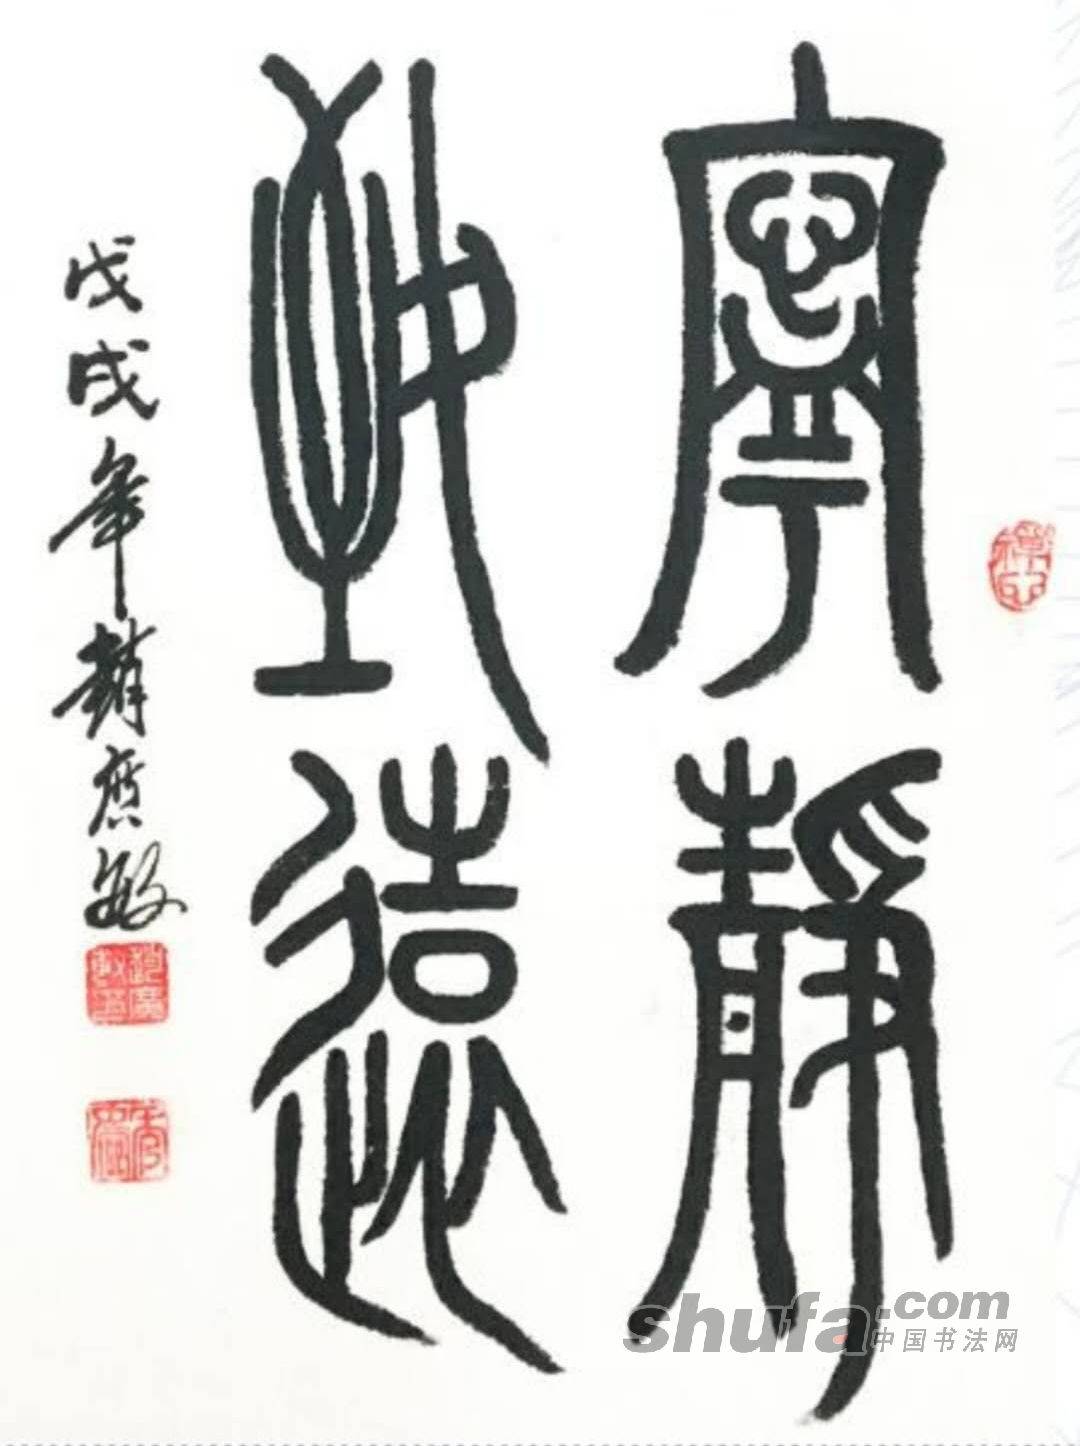 寧靜
致遠
戊戌年趙慶敏
shufa.com
中国书法网